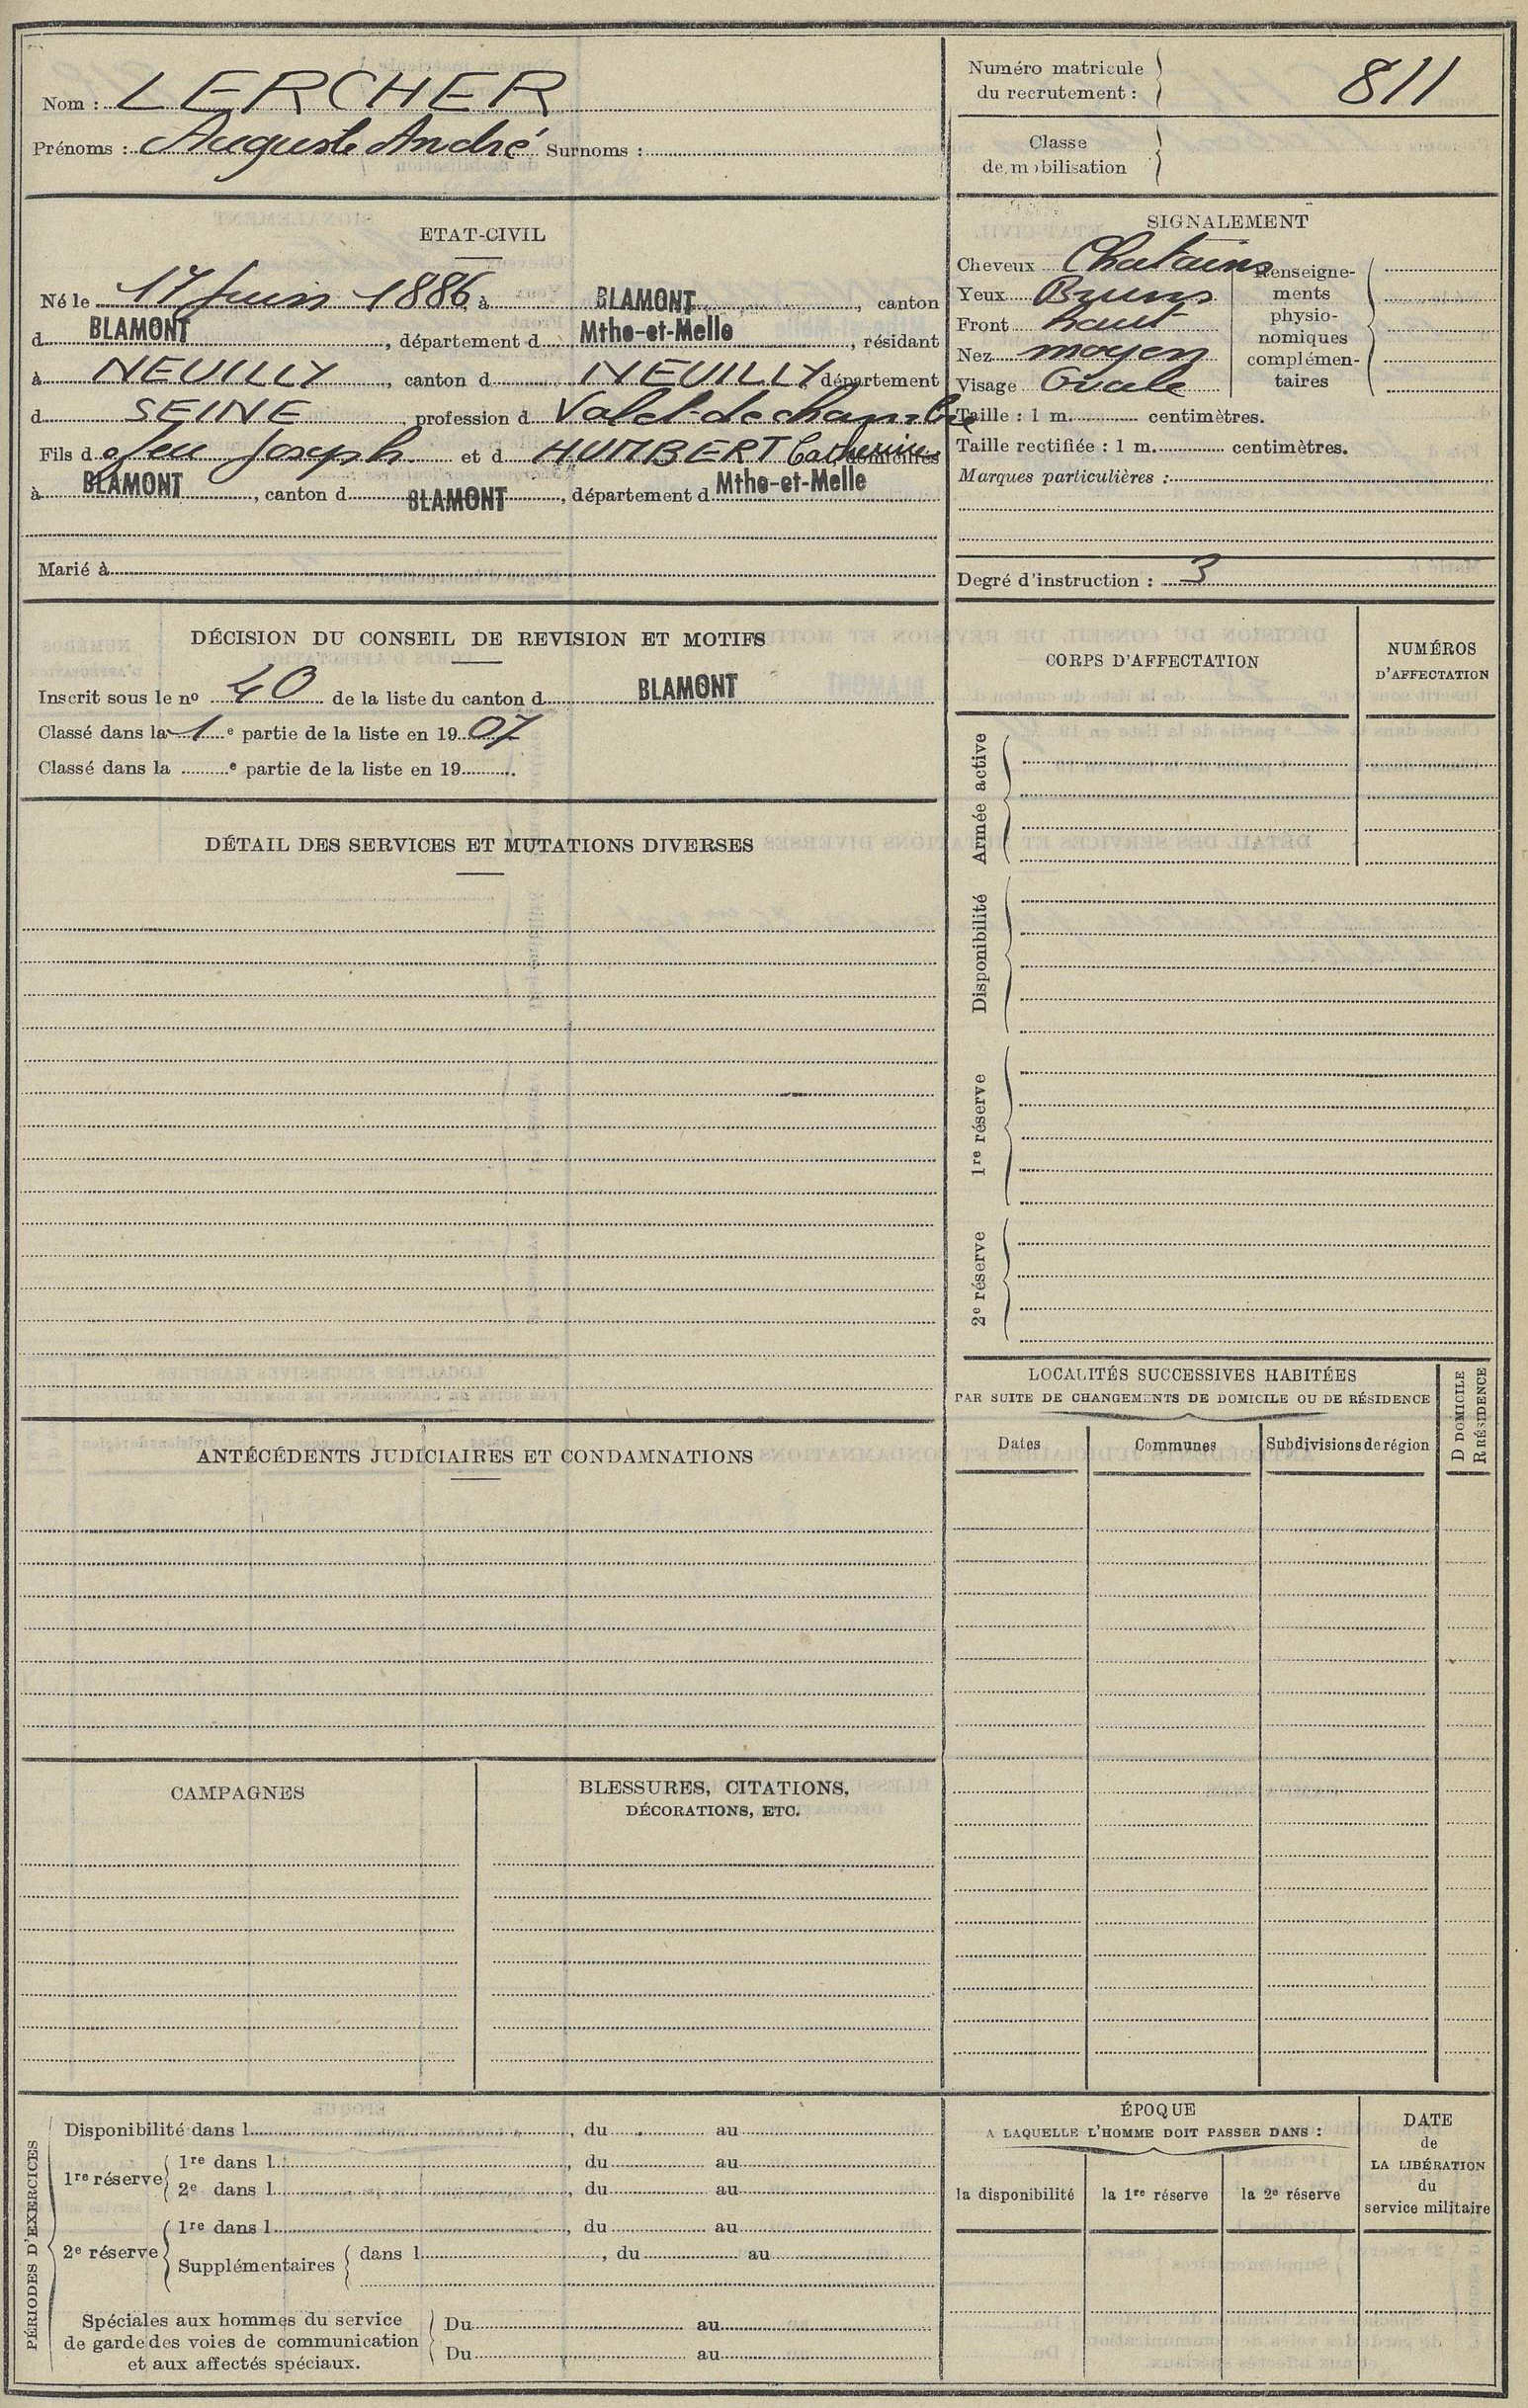 Nom : LERCHER
Prénoms : Auguste André Surnoms :
Numéro matricule du recrutement : 811
Classe de mobilisation
ETAT-CIVIL
Né le 17 Juin 1886, à BLAMONT, canton
d BLAMONT, département d Mthe-et-Melle, résidant
à NEUILLY, canton d NEUILLY département
d SEINE, profession d Valet de chambre
Fils d feu Joseph et d HUMBERT Catherine domiciliés
à BLAMONT, canton d BLAMONT, département d Mthe-et-Melle
Marié à
SIGNALEMENT
Cheveux Chatains
Yeux Bruns
Front haut
Nez moyen
Visage Ovale
Renseigne-
ments
physio-
nomiques
complémen-
taires
Taille : 1 m. centimètres.
Taille rectifiée : 1 m. centimètres.
Marques particulières :
Degré d'instruction : 3
DÉCISION DU CONSEIL DE REVISION ET MOTIFS
Inscrit sous le no 40 de la liste du canton d BLAMONT
Classé dans la 1e partie de la liste en 1907
Classé dans la e partie de la liste en 19
CORPS D'AFFECTATION
NUMÉROS
D'AFFECTATION
Armée active
Disponibilité
1re réserve
2e réserve
DÉTAIL DES SERVICES ET MUTATIONS DIVERSES
LOCALITÉS SUCCESSIVES HABITÉES
PAR SUITE DE CHANGEMENTS DE DOMICILE OU DE RÉSIDENCE
D DOMICILE
R RÉSIDENCE
Dates Communes Subdivisions de région
ANTÉCÉDENTS JUDICIAIRES ET CONDAMNATIONS
CAMPAGNES
BLESSURES, CITATIONS,
DÉCORATIONS, ETC.
PÉRIODES D'EXERCICES
Disponibilité dans l, du au
1re réserve
1re dans l, du au
2e dans l, du au
2e réserve
1re dans l, du au
Supplémentaires dans l, du au
Spéciales aux hommes du service
de garde des voies de communication
et aux affectés spéciaux.
Du au
Du au
ÉPOQUE
A LAQUELLE L'HOMME DOIT PASSER DANS :
la disponibilité la 1re réserve la 2e réserve
DATE
de
LA LIBÉRATION
du
service militaire